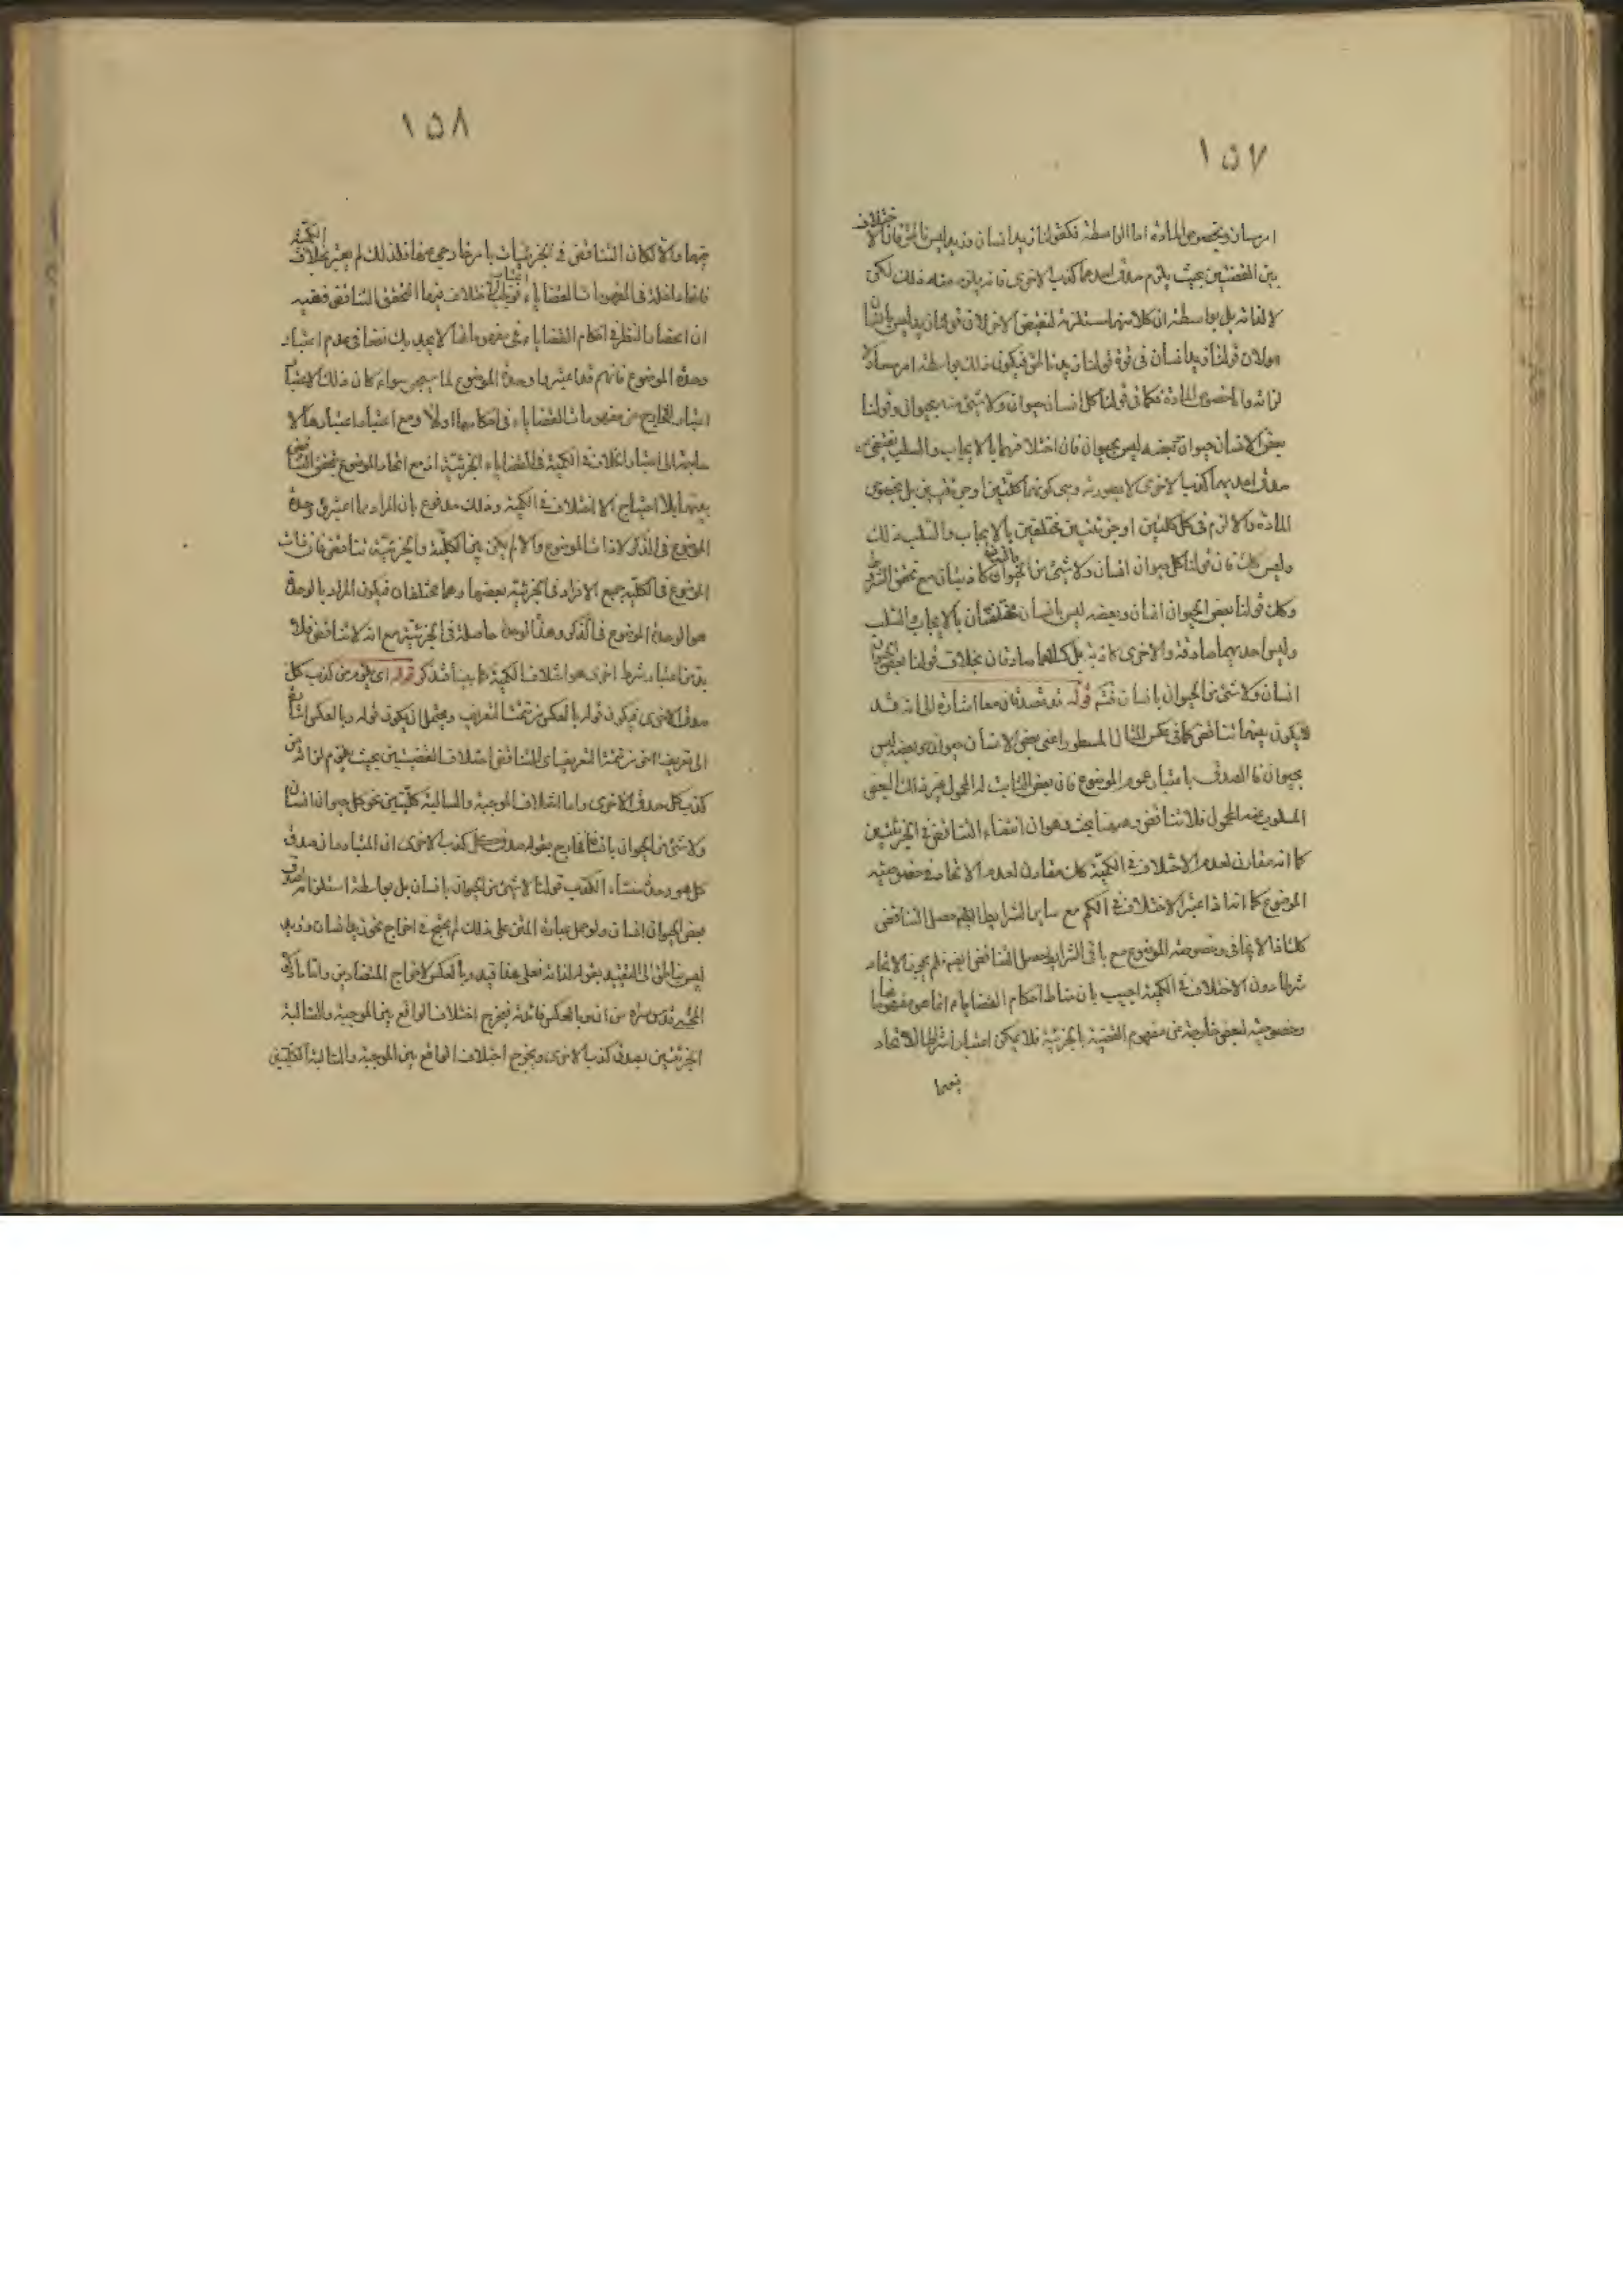 ١٥٧
امر مساو وبخصوص المادة اما الواسطة فكقولنا زيد انسان وزيد ليس بناطق فان الاختلاف
بين القضيتين بحيث يلزم صدق احديهما كذب الاخرى فانه يلزم منه ذلك لكن
لا لذاته بل بواسطة ان كلا منهما مستلزمة لنقيض الاخر لان قولنا زيد ليس بانسان
اولان قولنا زيد انسان في قوة قولنا زيد ناطق فيكون ذلك بواسطة امر مساو لا
لذاته واما خصوص المادة فكما في قولنا كل انسان حيوان ولا شئ منه بحيوان وقولنا
بعض الانسان حيوان بعضه ليس بحيوان فان اختلافهما بالايجاب والسلب يقتضى
صدق احديهما كذب الاخرى لا بصورته وهى كونهما كليتين او جزئيتين بل بخصوص
المادة والا لزم في كل كليتين او جزئيتين مختلفتين بالايجاب والسلب ذلك
وليس كذلك فان قولنا كل حيوان انسان ولا شئ من الحيوان بانسان كاذبتان مع تحقق الشرط
وكذا قولنا بعض الحيوان انسان وبعضه ليس بانسان مختلفتان بالايجاب والسلب
وليس احديهما صادقة والاخرى كاذبة بل كلاهما صادقان بخلاف قولنا بعض الحيوان
انسان ولا شئ من الحيوان بانسان قوله قد تصدقان معا اشارة الى انه قد
لا يكون بينهما تناقض كما في عكس المثال المسطور اعنى بعض الانسان حيوان وبعضه ليس
بحيوان فالصدق باعتبار عموم الموضوع فان بعض الثابت له المحمول غير ذلك البعض
المسلوب عنه المحمول فلا تناقض وههنا بحث وهو ان انتفاء التناقض في الجزئيتين
كما انه مقارن لعدم الاختلاف في الكمية كذلك مقارن لعدم الاتحاد في خصوصية
الموضوع كما انه اذا اعتبر الاختلاف في الكم مع ساير الشرايط حصل التناقض
كذلك اذا الاتحاد في خصوصية الموضوع مع باقى الشرايط حصل التناقض ايضا فلم يجعل الاتحاد
شرطا دون الاختلاف في الكمية اجيب بان مناط احكام القضايا انما هو مفهوماتها
وخصوصية البعض خارجة عن مفهوم القضية الجزئية فلا يمكن اعتبار اشتراط الاتحاد
فيهما
١٥٨
فيهما والا لكان التناقض في الجزئيات بامر خارجى عنها فلذلك لم يعتبر بخلاف الكمية
فانها داخلة في مفهومات القضايا، فوجب اعتبار الاختلاف فيها لتحقق التناقض ففيه
ان اختصار النظر في احكام القضايا، على مفهوماتها لا يجديك نفعا في عدم اعتبار
وحدة الموضوع فانهم قد اعتبروا وحدة الموضوع لما سيجئ سواء كان ذلك الاعتبار
اعتبار الخارج من مفهومات القضايا، في احكامها اولا ومع اعتبار اعتبارها لا
حاجة الى اعتبار اختلاف الكمية في القضايا، الجزئية اذ مع اتحاد الموضوع يتحقق التناقض
بينهما بلا احتياج الا اختلاف في الكمية وذلك مدفوع بان المراد بما اعتبر في وحدة
الموضوع في الذكر لا ذات الموضوع والا لم يكن بين الكلية والجزئية تناقض فان ذات
الموضوع في الكلية جميع الافراد في الجزئية بعضها وهما مختلفان فيكون المراد بالوحدة
هو الوحدة الموضوع في الذكر وهذا الوحدة حاصلة في الجزئية مع انه لا تناقض فلا
بد من اعتبار شرط اخرى هو اختلاف الكمية كما بينا فتذكر قوله اى يلزم من كذب كل
صدق الاخرى فيكون قوله بالعكس من تتمة التعريف ويحتمل ان يكون قوله وبالعكس اشارة
الى تعريف اخر من تتمة التعريف اى التناقض اختلاف القضيتين بحيث يلزم لذاته من
كذب كل صدق الاخرى واما اختلاف الموجبة والسالبة كليتين نحو كل حيوان انسان
ولا شئ من الحيوان بانسان خارج بقوله صدق كل كذب الاخرى اذ المتبادر ان صدق
كل هو وحده منشاء الكذب قولنا لا شئ من الحيوان بانسان بل بواسطة استلزامه صدق
بعض الحيوان انسان ولو حمل عبارة المتن على ذلك لم يحتج في اخراج نحو زيد انسان وزيد
ليس بناطق الى التقييد بقوله لذاته فعلى هذا قيد وبالعكس لاخراج المتضادين واما ما ذكره
المحشى قدس سره من ان وبالعكس فائدته ليخرج اختلاف الواقع بين الموجبة والسالبة
الجزئيتين بصدق كذب الاخرى ويخرج اختلاف الواقع بين الموجبة والسالبة الكليتين